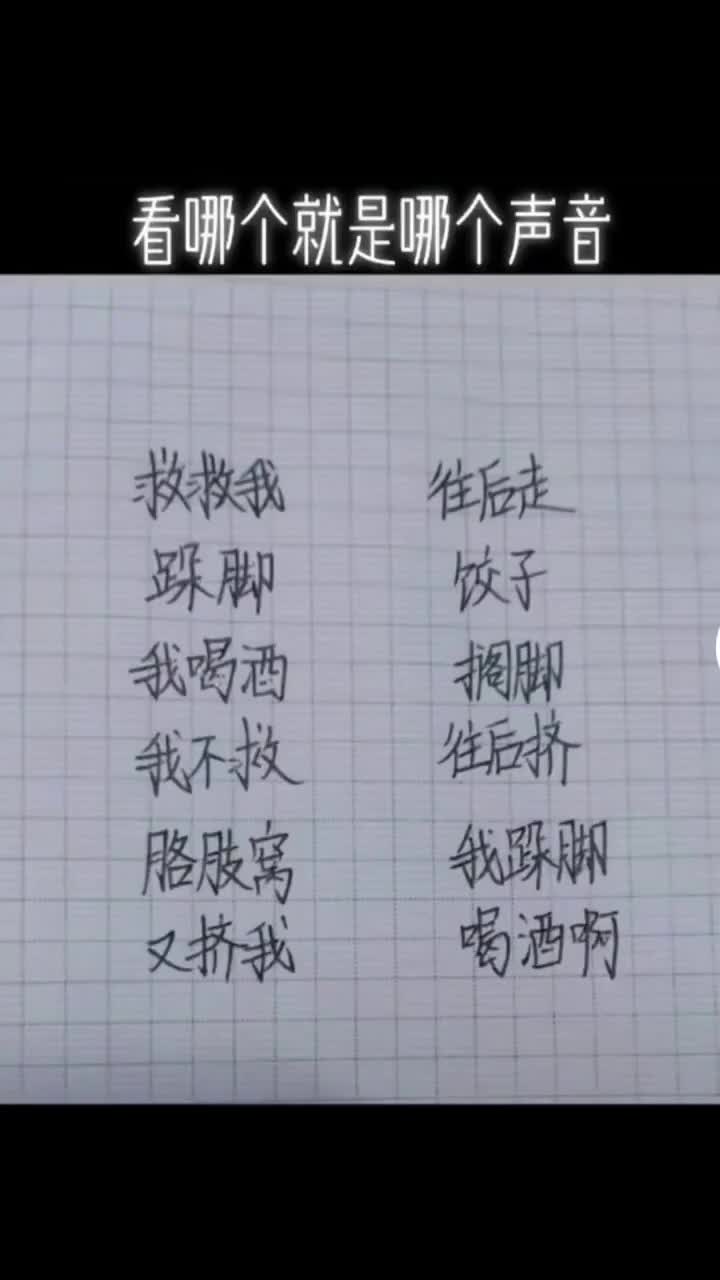 看哪个就是哪个声音
救救我 往后走
跺脚 饺子
我喝酒 搁脚
我不救 往后挤
胳肢窝 我跺脚
又挤我 喝酒啊